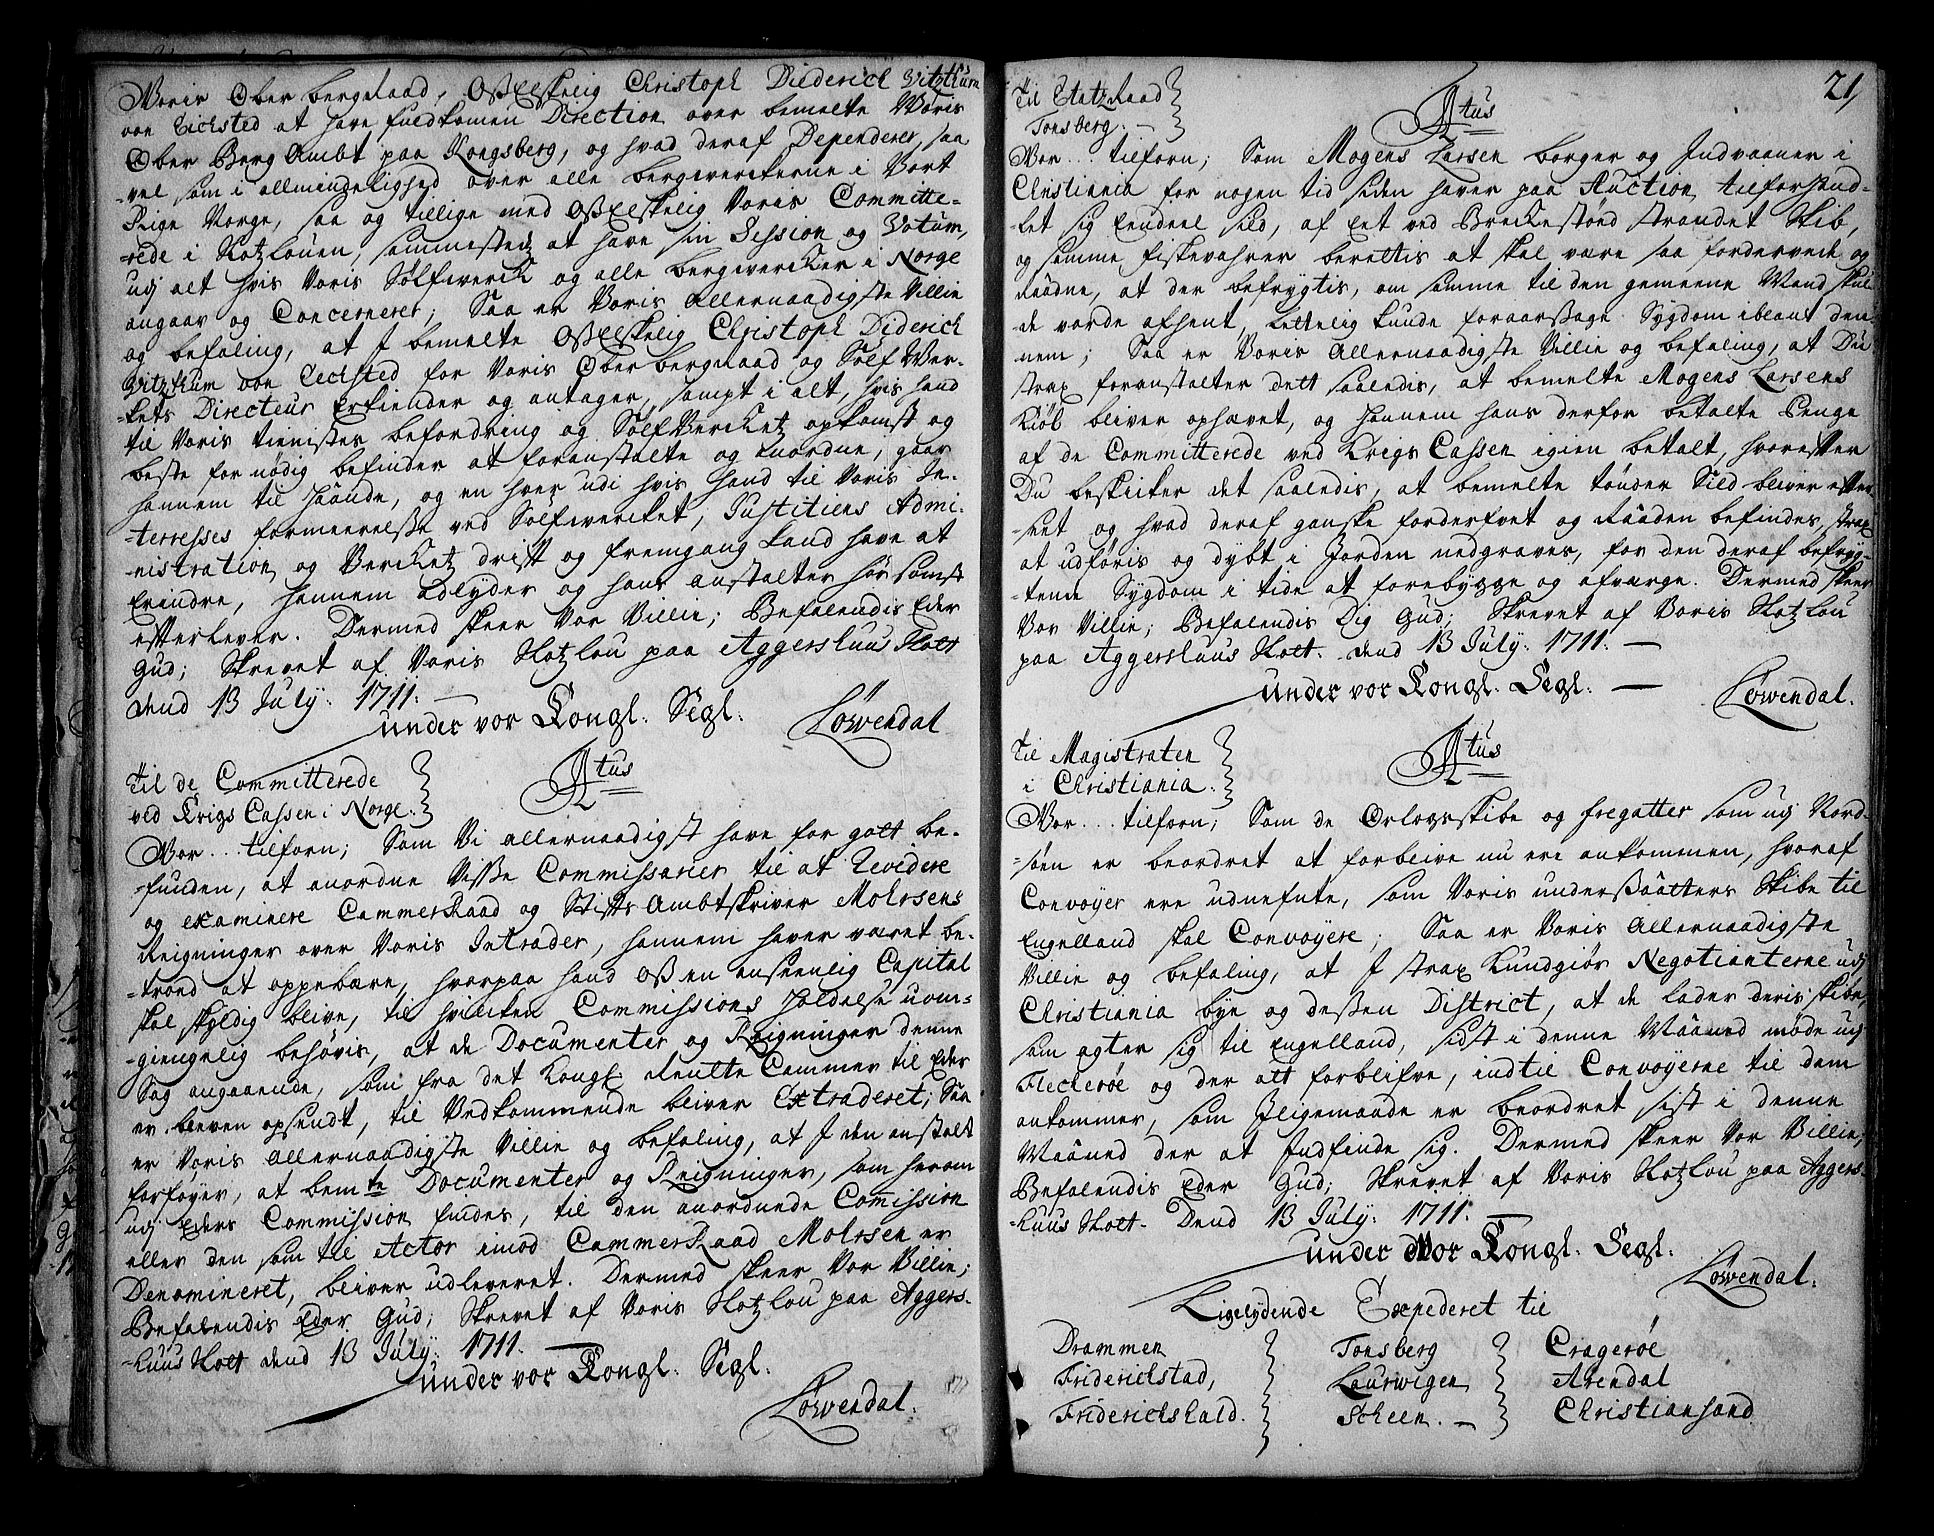 Voris Ober bergRaad, OßElskelig Christoph Diederich Vitzthum
von Eichsted at have fuldkomen Direction over bemelte Voris
Ober Berg Ambt paa Kongsberg, og hvad deraf Dependerer, saa
-vel som i allmindelighed over alle bergwerckerne i Vort
Rige Norge, saa og tillige med OßElskelig Voris Committe-
-rede i Slotzlouen, sammesteds at have sin Session og Votum,
udj alt hvis Voris Sølfwerck og alle bergwercker i Norge
angaar og Concernerer; Saa er Voris Allernaadigste Villie
og befaling, at I bemelte OßElskelig Christoph Diderich
Vitzthum von Eechsted for Voris Ober bergRaad og Sølf Wer-
-kets Directeur Erkiender og antager, sampt i alt, hvis hand
til Voris tienistes befordring og Sølfverketz opkomst og
beste for nödig befinder at foranstalte og anordne, gaar
hannem til Haande, og en hver udi hvis hand til Voris In-
-terresses formeerelße ved Sølfwercket, Justitiens Admi-
-nistration og Verketz drift og fremgang kand have at
Erindre, hannem adlyder og hans anstalter hørsomst
efterlever. Dermed skeer Vor Villie; Befalendis Eder
Gud; Skrevet af Voris Slotzlou paa Aggershuus Slott
dend 13 July: 1711.
under vor Kongl. Segl.
Løwendal
Til de Committerede
ved Krigs Cassen i Norge.
Atus
Vor... tilforn; Som Vi allernaadigst have for gott be-
-funden, at anordne Visse Commissarier til at Revidere
og examinere CammerRaad og Stifts Ambtskriver Molrsens
Reigninger over Voris Intrader, hannem haver været be-
-troed at oppebære, hvorpaa hand oß en anseenlig Capital
skal skyldig blive, til hvilken Commissions Holdelse uom-
-giengelig behøvis, at de Documenter og Reigninger denne
Sag angaaende, som fra det Kongl. Rentte Cammer til Eder
er bleven opsendt, til Vedkommende bliver Extraderet; Saa
er Voris allernaadigste Villie og befaling, at I den anstalt
forføyer, at bemte Documenter og Reigninger, som herom
udj Eders Commission findes, til den anordnede Comission
eller den som til Actor imod CammerRaad Molrsen er
Denomineret, bliver udleveret. Dermed skeer Vor Villie;
Befalendis Eder Gud; Skrevet af Voris Slotzlou paa Aggers-
-huus Slott dend 13 July: 1711.
under vor Kongl. Segl.
Løwendal.
21,
Til Etatz Raad
Tonsberg.
Atus
Vor... tilforn; Som Mogens Larsen borger og Indvaaner i
Christiania for nogen tid siden haver paa Auction tilforhand-
-let sig Endeel sild, af Eet ved Breckestød strandet Skib,
og samme fiskevahrer berettis at skal være saa fordervede og
Raadne, at der befrygtis, om samme til den gemeene Mand skul-
de vorde afhent, letteligkunde foraarßage Sygdom iblant den-
nem; Saa er Voris Allernaadigste Villie og befaling, at Du
strax foranstalter dett saaledis, at bemelte Mogens Larsens
Kiöb bliver ophævet, og Hannem hans derfor betalte Penge
af de Committerede ved Krigs Cassen igien betalt, hvorefter
Du beskicker det saaledis, at bemelte tønder Sild bliver efter-
-seet og hvad deraf ganske forderfvet og Raaden befindes, strax
at udføris og dybt i Jorden nedgraves, for den deraf befryg-
-tende Sygdom i tide at forebygge og afværge. Dermed skeer
Vor Villie; Befalendis Dig Gud; Skrevet af Voris Slotzlou
paa Aggershuus Slott. dend 13 July: 1711.
under vor Kongl. Segl.
Løwendal.
Til Magistraten
i Christiania.
Atus
Vor... tilforn; Som de Orlogsskibe og fregatter som udj Nord-
-søen er beordret at forblive nu ere ankommen, hvoraf
Convoyer ere udnefnte, som Voris undersåatters Skibe til
Engelland skal Convoyere; Saa er Voris Allernaadigste
Villie og befaling, at I strax kundgiør Negotianterne udj
Christiania bye og deßen District, at de lader deris skibe,
som agter sig til Engelland, sidst i denne Maaned møde udj
Fleckerøe og der att forblifve, indtil Convoyerne til dem
ankommer, som Jligemaade er beordret sist i denne
Maaned der at Jndfinde sig. Dermed skeer Vor Villie;
Befalendis Eder Gud; Skrevet af Voris Slotzlou paa Aggers-
-huus Slott. Dend 13 July: 1711.
under Vor Kongl. Segl.
Løwendal.
Ligelydende Expederet til
Drammen Tonsberg Cragerøe
Friderichstad, Laurwigen Arendal
Friderichshald. Scheen. Christiansand